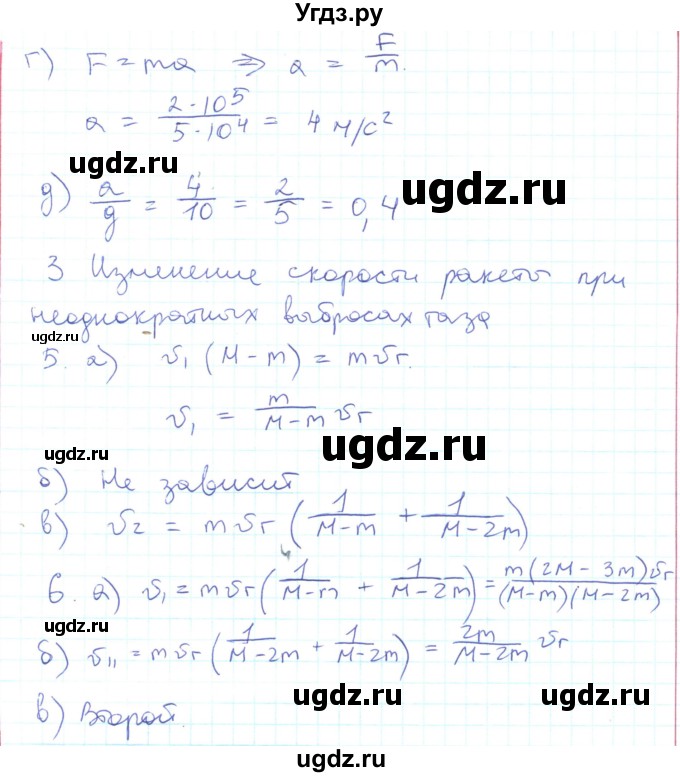 Угдз.ру
г) F = ma ⇒ a = F/m.
a = 2·10⁵/5·10⁴ = 4 м/с²
ugdz.ru
ugdz.ru
д) a/g = 4/10 = 2/5 = 0,4
3 Изменение скорости ракеты при
неоднократных выбросах газа
ugdz.ru
5. а) υ₁ (М – m) = mυг.
υ₁ = m/М–m υг
ugdz.ru
ugdz.ru
б) Не зависит
в) υ₂ = mυг (1/М–m + 1/М–2m)
6. а) υ₁ = mυг (1/М–m + 1/М–2m) = m(2М – 3m)υг/(М–m)(М–2m)
ugdz.ru
б) υ₁₁ = mυг (1/М–2m + 1/М–2m) = 2m/М–2m υг
ugdz.ru
ugdz.ru
в) Второй.
ugdz.ru